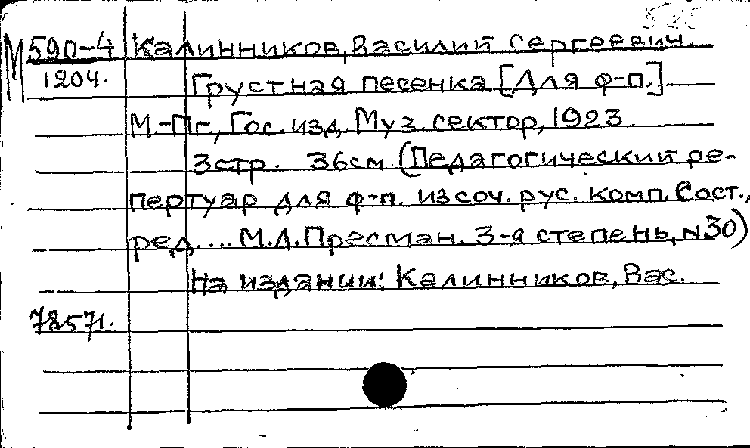 М 590-4 Калинников, Василий Сергеевич.
1204. Грустная песенка [Для ф-п.]
М.-Пг., Гос. изд. Муз. сектор, 1923.
3стр. 36см (Педагогический ре-
пертуар для ф-п. из соч. рус. комп. Сост.,
ред. ... М.Л.Пресман. 3-я степень, № 30)
На издании: Калинников, Вас.
78571.